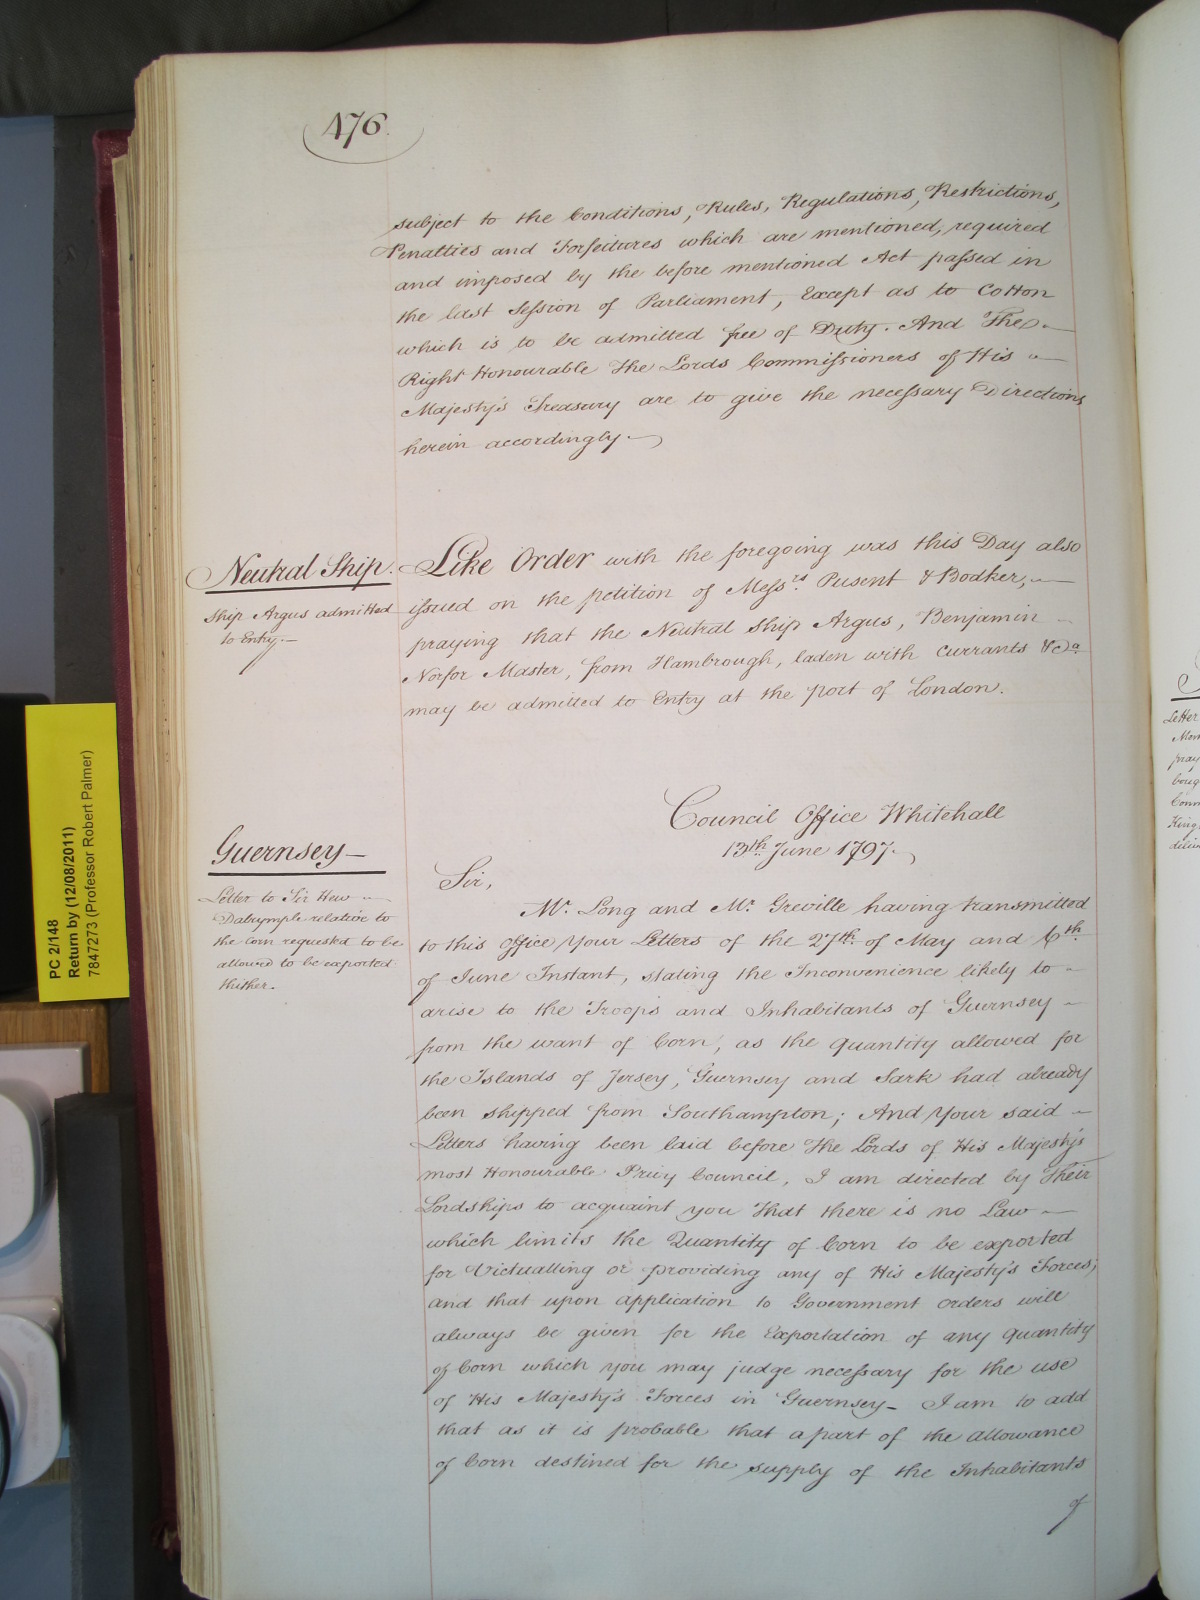 476.
subject to the Conditions, Rules, Regulations, Restrictions,
Penalties and Forfeitures which are mentioned, required
and imposed by the before mentioned Act passed in
the last Session of Parliament, Except as to Cotton
which is to be admitted free of Duty. And The
Right Honourable The Lords Commissioners of His
Majesty's Treasury are to give the necessary Directions
herein accordingly.
Neutral Ship.
Ship Argus admitted
to Entry.
Like Order with the foregoing was this Day also
issued on the petition of Mess.rs Pusent & Bodker,
praying that the Neutral Ship Argus, Benjamin
Norfor Master, from Hambrough, laden with Currants &ca
may be admitted to Entry at the port of London.
Council Office Whitehall
13th June 1797.
Guernsey
Letter to Sir Hew
Dalrymple relative to
the Corn requested to be
allowed to be exported
thither.
Sir,
Mr. Long and Mr. Greville having transmitted
to this Office Your Letters of the 27th of May and 6th
of June Instant, stating the Inconvenience likely to
arise to the Troops and Inhabitants of Guernsey
from the want of Corn, as the quantity allowed for
the Islands of Jersey, Guernsey and Sark had already
been shipped from Southampton; And Your said
Letters having been laid before The Lords of His Majesty's
most Honourable Privy Council, I am directed by Their
Lordships to acquaint you That there is no Law
which limits the Quantity of Corn to be exported
for Victualling or providing any of His Majesty's Forces;
and that upon application to Government orders will
always be given for the Exportation of any quantity
of Corn which you may judge necessary for the use
of His Majesty's Forces in Guernsey - I am to add
that as it is probable that a part of the allowance
of Corn destined for the supply of the Inhabitants
of
PC 2/148
Return by (12/08/2011)
7847273 (Professor Robert Palmer)
Letter
pray